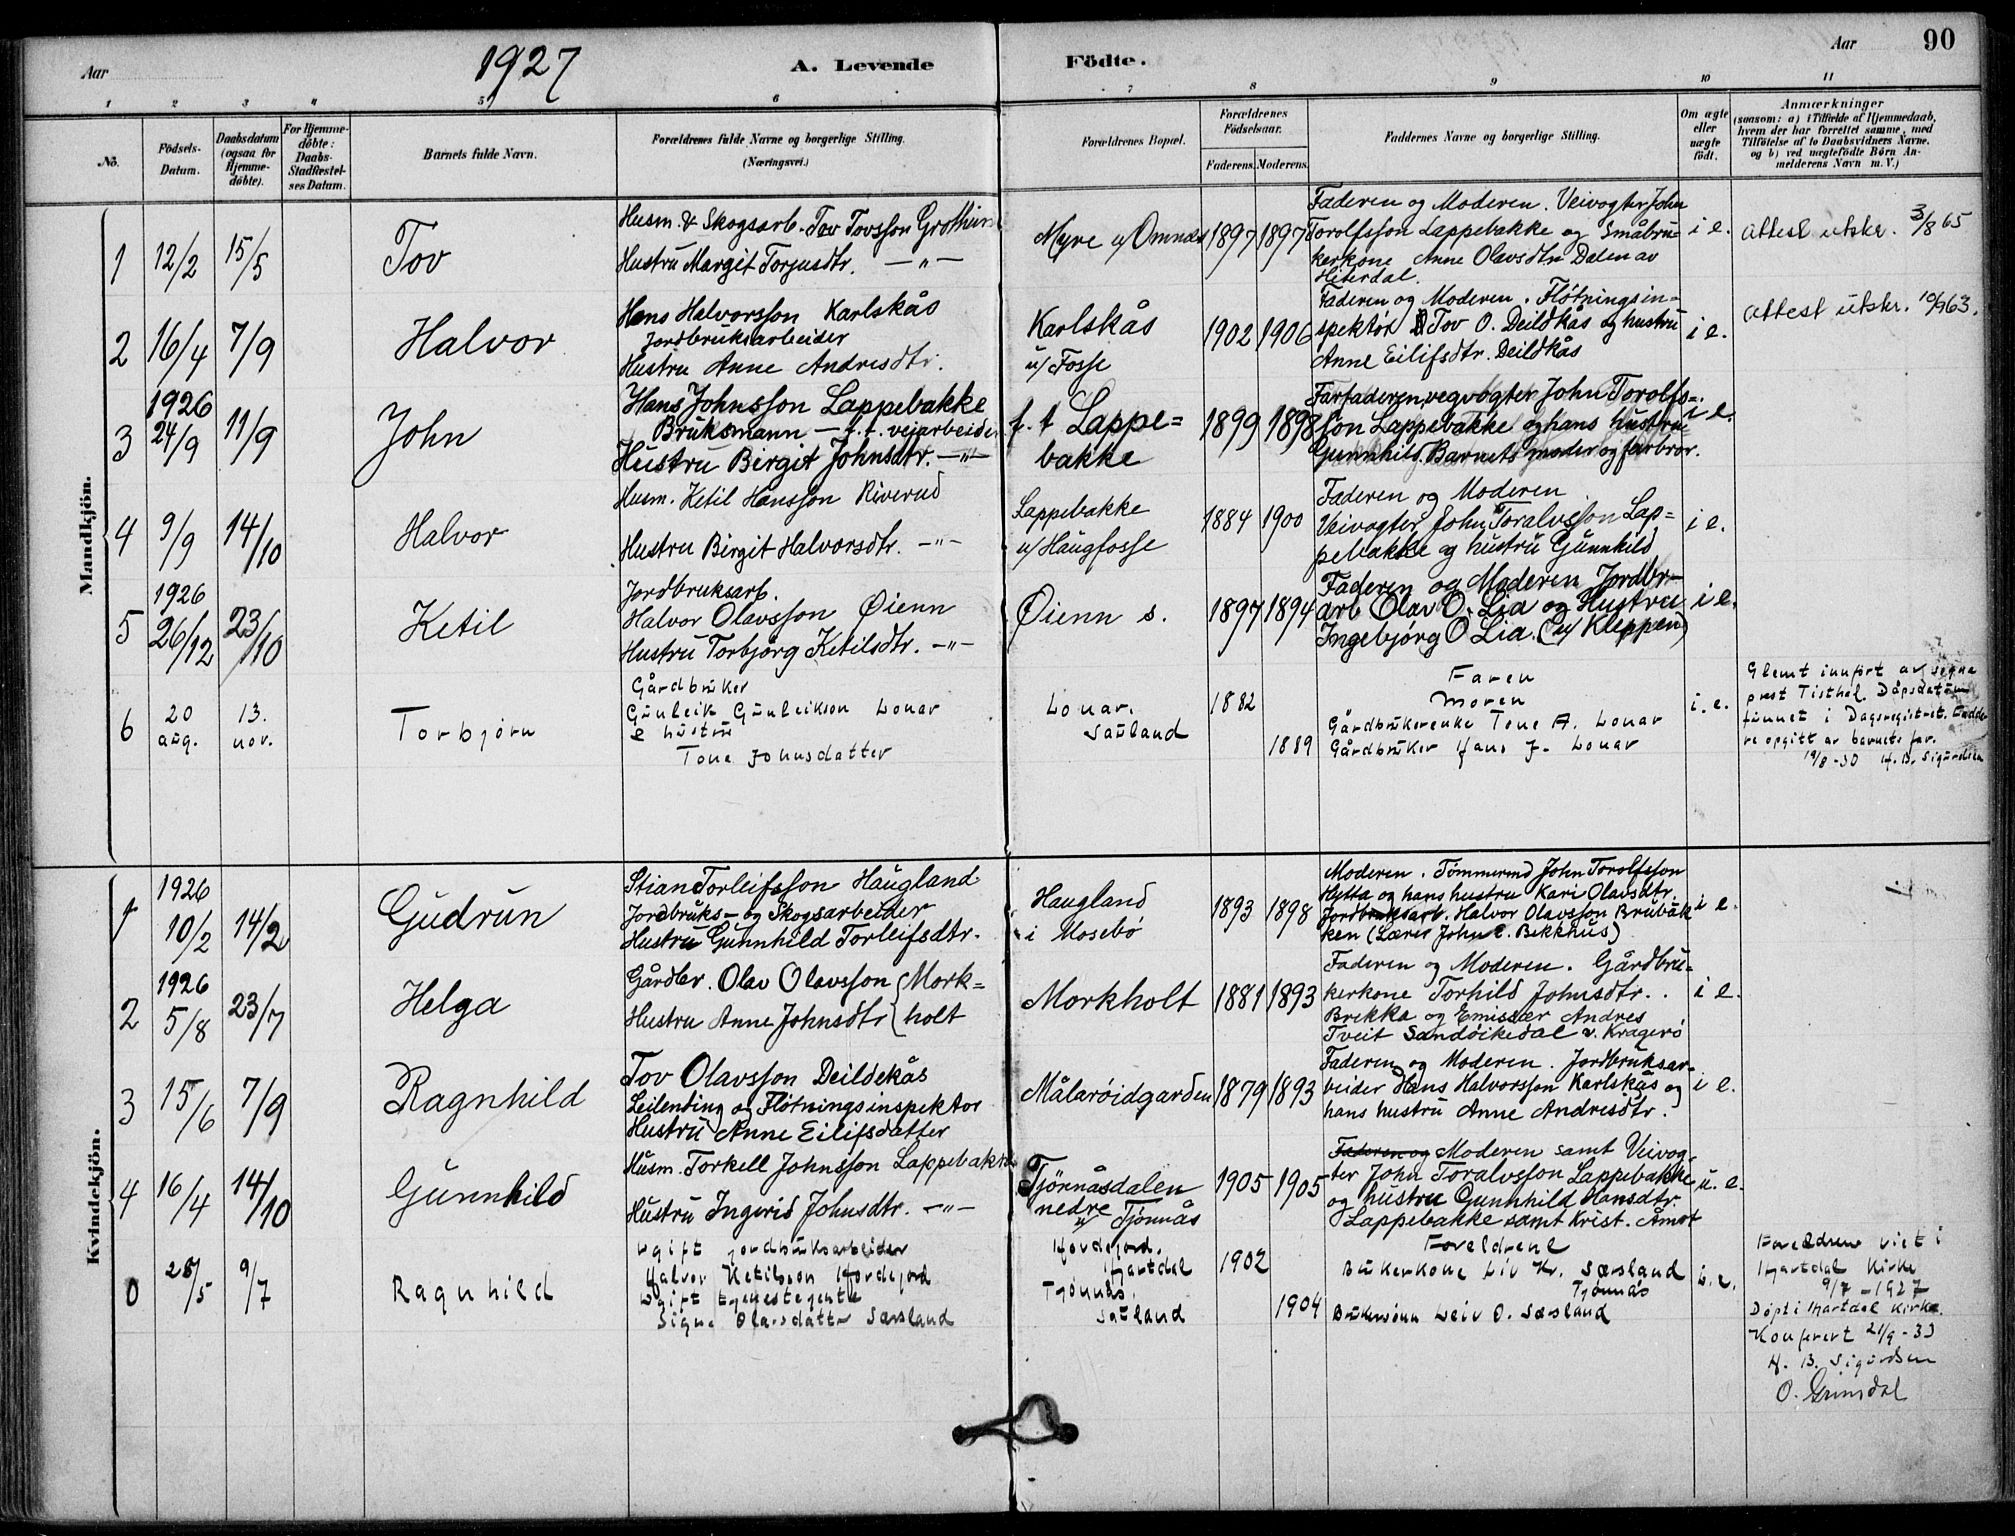 Aar 1927 A. Levende Födte. Aar 90
1 2 3 4 5 6 7 8 9 10 11
No.
Födsels-Datum.
Daabsdatum (ogsaa for Hjemme-döbte).
For Hjemme-döbte: Daabs-Stadfæstel-ses Datum.
Barnets fulde Navn.
Forældrenes fulde Navne og borgerlige Stilling. (Næringsvei.)
Forældrenes Bopæl.
Forældrenes Födselsaar.
Faderens. Moderens.
Faddernes Navne og borgerlige Stilling.
Om ægte eller uægte födt.
Anmærkninger
(saasom: a) i Tilfælde af Hjemmedaab,
hvem der har forrettet samme, med
Tilföielse af to Daabsvidners Navne,
og b) ved uægtefödte Börn An-
melderens Navn m. V.)
Mandkjön.
1 12/2 15/5 Tov
Husm. & Skogsarb. Tov Tovsson Grothur
Hustru Margit Torjusdtr. —"—
Myre u/ Omnæs 1897 1897
Faderen og Moderen. Veivogter John
Torolfsson Lappebakke og Småbru-
kerkone Anne Olavsdtr Dalen av
Hiterdal.
i e.
attest utskr. 3/8 65
2 16/4 7/9 Halvor
Hans Halvorsson Karlskås
Jordbruksarbeider
Hustru Anne Andresdtr.
Karlskås
u/ Fosse
1902 1906
Faderen og Moderen. Fløtningsin-
spektør Tov O. Deildkås og hustru
Anne Eilifsdtr. Deildkås
i e.
attest utskr. 10/9 63.
3 1926 24/9 11/9 John
Hans Johnsson Lappebakke
Bruksmann — f. t. veiarbeider
Hustru Birgit Johnsdtr. —"—
f. t Lappe=
bakke
1899 1898
Farfaderen, vegvogter John Torolfs=
son Lappebakke og hans hustru
Gunnhild. Barnets moder og farbror.
i e.
4 9/9 14/10 Halvor
Husm. Ketil Hansson Riverud
Hustru Birgit Halvorsdtr. —"—
Lappebakke
u/ Haugfosse
1884 1900
Faderen og Moderen
Veivogter John Toralvsson Lap=
pebakke og hustru Gunnhild
i e.
5 1926 26/12 23/10 Ketil
Jordbruksarb.
Halvor Olavsson Øienn
Hustru Torbjørg Ketilsdtr. —"—
Øienn s. 1897 1894
Faderen og Moderen Jordbr-
arb Olav O. Lia og Hustru
Ingebjørg O Lia. (u/ Kleppen)
i e.
6 20 aug. 13. nov. Torbjørn
Gårdbruker
Gunleik Gunleikson Lonar
& hustru
Tone Johnsdatter
Lonar.
Sauland
1882 1889
Faren
Moren
Gårdbrukerenke Tone A. Lonar
Gårdbruker Hans J. Lonar
i. e.
Glemt innført av sogne
prest Tisthal. Dåpsdatum
funnet i Dagsregistret. Fadde
re opgitt av barnets far.
19/8-30 H. B. Sigurdsen
Kvindekjön.
1 1926 10/2 14/2 Gudrun
Stian Torleifsson Haugland
Jordbruks- og Skogsarbeider
Hustru Gunnhild Torleifsdtr.
Haugland
i Mosebø
1893 1898
Moderen. Tømmermd John Torolfsson
Hytta og hans hustru Kari Olavsdtr.
Jordbruksarb. Halvor Olavsson Brubak
ken (Lærer John E. Bekkhus)
i e.
2 1926 5/8 23/7 Helga
Gårdbr. Olav Olavsson { Mork=
Hustru Anne Johnsdtr { holt
Morkholt 1881 1893
Faderen og Moderen. Gårdbru=
kerkone Torhild Johnsdtr.
Brekka og Emisær Andres
Tveit Sandøikedal v. Kragerø
i e.
3 15/6 7/9 Ragnhild
Tov Olavsson Deildekås
Leilending og Fløtningsinspektor
Hustru Anne Eilifsdatter
Målarøidgarden 1879 1893
Faderen og Moderen. Jordbruksar-
beider Hans Halvorsson Karlskås og
hans hustru Anne Andresdtr.
i e.
4 16/4 14/10 Gunnhild
Husm. Torkell Johnsson Lappebakke
Hustru Ingerid Johnsdtr. —"—
Tjønnåsdalen
nedre
u/ Tjønnås
1905 1905
Faderen og Moderen samt Veivog-
ter John Toralvsson Lappebakke
og hustru Gunnhild Hansdtr.
Lappebakke samt Krist. Åmot
u. e.
0 28/5 9/7 Ragnhild
Ugift jordbruksarbeider
Halvor Ketilsson Hordejord
Ugift tjenestejente
Signe Olavsdatter Sæsland
Hordejord.
Hjartdal
Tjønnås.
Sauland
1902 1904
Foreldrene
Brukerkone Liv Kr. Sæsland
Tjønnås
Brukersønn Leiv O. Sæsland
i. e.
Foreldrene viet i
Hjartdal Kirke
9/7 - 1927
Døpt i Hjartdal Kirke.
Konferert 21/9 - 33
H. B. Sigurdsen
O. Grimdal